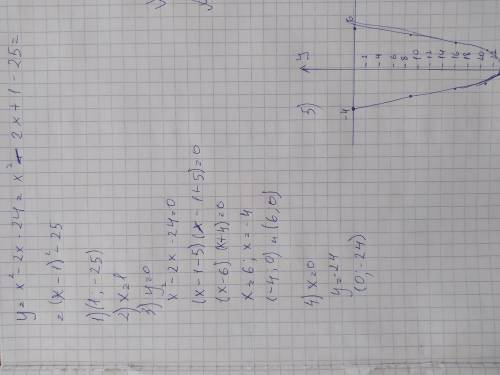 y = x² - 2x - 24 = x² - 2x + 1 - 25 =
= (x - 1)² - 25
1) (1, -25)
2) x = 1
3) y = 0
x² - 2x - 24 = 0
(x - 1 - 5) (x - 1 + 5) = 0
(x - 6) (x + 4) = 0
x = 6; x = -4
(-4, 0) и (6, 0)
4) x = 0
y = -24
(0; -24)
5)
y
-4
6
-2
-4
-6
-8
-10
-12
-14
-16
-18
-20